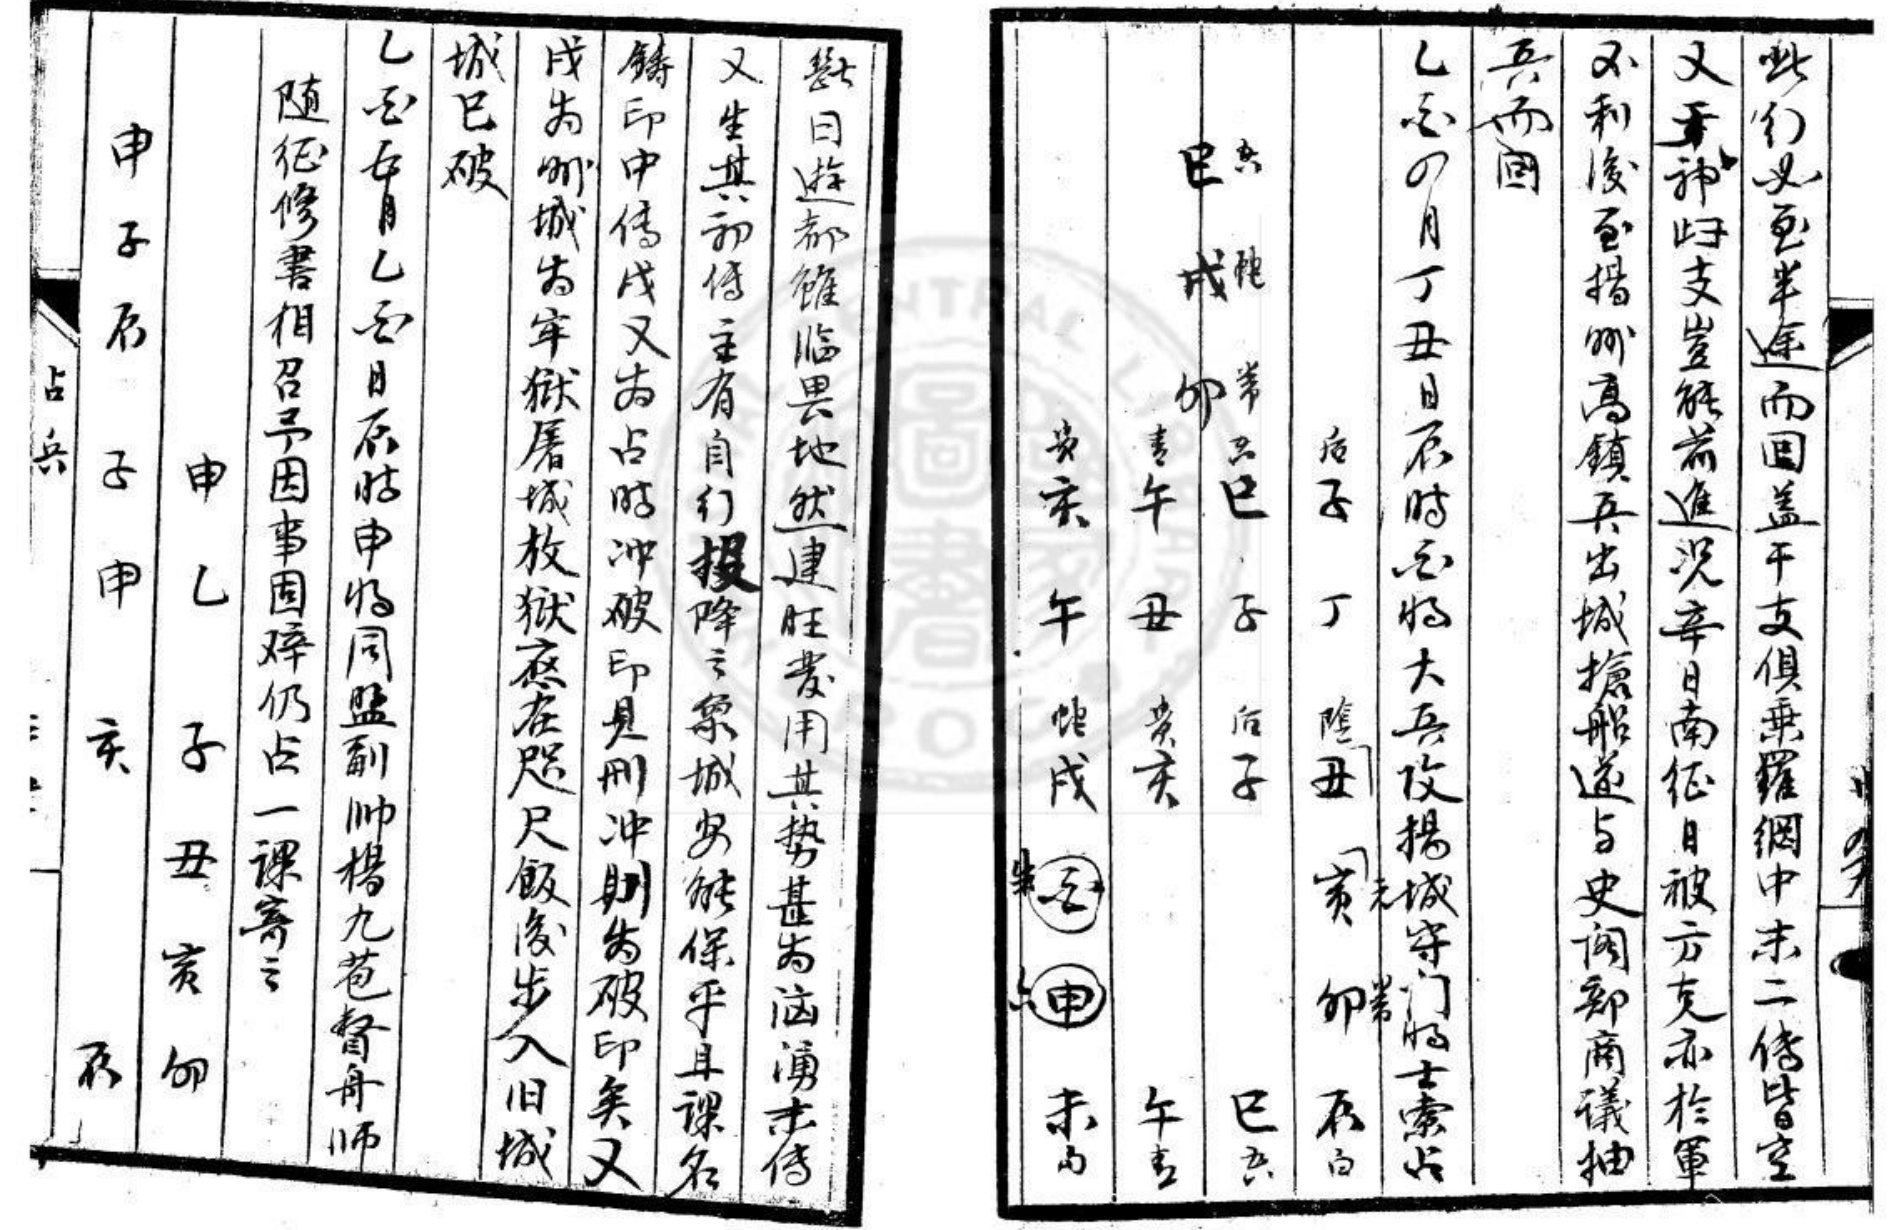 此行必至半途而回盖干支俱乗羅網中末二傳皆空
又天神归支豈能前進况辛日南征日被方克亦於軍
不利後至揚州高鎮兵出城搶船遂与史阁部商議抽
兵而回
乙酉四月丁丑日辰時酉将大兵攻揚城守门将士索占
后子 丁 陰丑 寅元 卯常 辰白
玄巳 子 后子 巳玄
青午 丑 贵亥 午青
贵亥 午 蛇戌 朱酉 六申 未勾
玄巳
蛇戌
常卯
斷曰遊都雖临畏地然建旺发用其势甚为汹湧末傳
又生其初傳主有自行投降之象城安能保乎且課名
鑄印中傳戌又为占時冲破印見刑冲則为破印矣又
戌为州城为牢獄屠城放獄應在咫尺飯後步入旧城
城已破
乙酉五月乙酉日辰時申将同盟副帅楊九苞督舟师
随征修書相召予因事固辞仍占一課寄之
申 乙 子 丑 寅 卯
申 子 辰 子 申 亥 辰
占兵